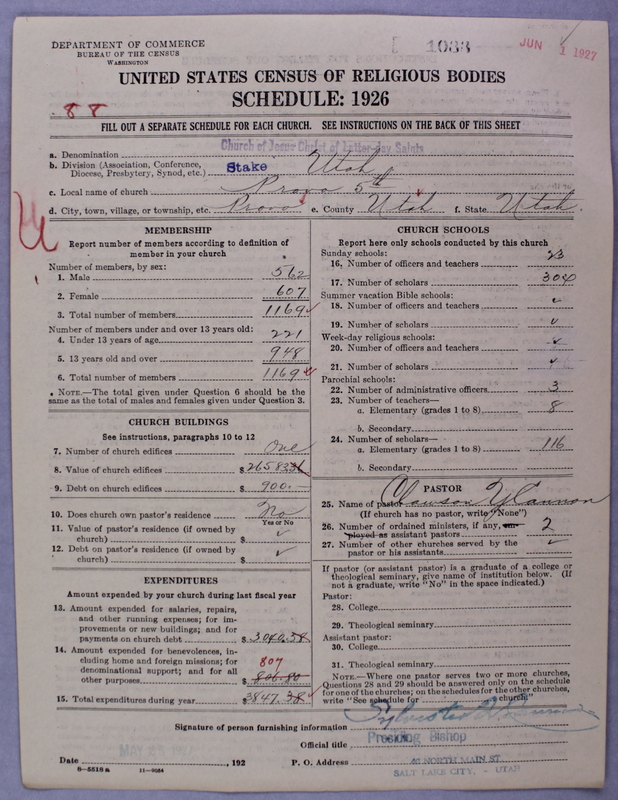 DEPARTMENT OF COMMERCE
BUREAU OF THE CENSUS
WASHINGTON
1033
JUN 1 1927
UNITED STATES CENSUS OF RELIGIOUS BODIES
SCHEDULE: 1926
88
FILL OUT A SEPARATE SCHEDULE FOR EACH CHURCH. SEE INSTRUCTIONS ON THE BACK OF THIS SHEET
a. Denomination Church of Jesus Christ of Latter-day Saints
b. Division (Association, Conference, Diocese, Presbytery, Synod, etc.) Stake Utah
c. Local name of church Provo 5th
d. City, town, village, or township, etc. Provo e. County Utah f. State Utah.
MEMBERSHIP
Report number of members according to definition of member in your church
Number of members, by sex:
1. Male 562
2. Female 607
3. Total number of members 1169
Number of members under and over 13 years old:
4. Under 13 years of age 221
5. 13 years old and over 948
6. Total number of members 1169
NOTE.—The total given under Question 6 should be the same as the total of males and females given under Question 3.
CHURCH BUILDINGS
See instructions, paragraphs 10 to 12
7. Number of church edifices One
8. Value of church edifices $26583
9. Debt on church edifices $ 900.—
10. Does church own pastor's residence No
Yes or No
11. Value of pastor's residence (if owned by church) $ ✓
12. Debt on pastor's residence (if owned by church) $ ✓
EXPENDITURES
Amount expended by your church during last fiscal year
13. Amount expended for salaries, repairs, and other running expenses; for improvements or new buildings; and for payments on church debt $ 3040.38
14. Amount expended for benevolences, including home and foreign missions; for denominational support; and for all other purposes $ 806.80 807
15. Total expenditures during year $3847.38
CHURCH SCHOOLS
Report here only schools conducted by this church
Sunday schools:
16. Number of officers and teachers 23
17. Number of scholars 304
Summer vacation Bible schools:
18. Number of officers and teachers ✓
19. Number of scholars ✓
Week-day religious schools:
20. Number of officers and teachers ✓
21. Number of scholars ✓
Parochial schools:
22. Number of administrative officers 3
23. Number of teachers—
a. Elementary (grades 1 to 8) 8
b. Secondary
24. Number of scholars—
a. Elementary (grades 1 to 8) 116
b. Secondary
PASTOR
25. Name of pastor Clawson Y Cannon
(If church has no pastor, write "None")
26. Number of ordained ministers, if any, employed as assistant pastors 2
27. Number of other churches served by the pastor or his assistants ✓
If pastor (or assistant pastor) is a graduate of a college or theological seminary, give name of institution below. (If not a graduate, write "No" in the space indicated.)
Pastor:
28. College
29. Theological seminary
Assistant pastor:
30. College
31. Theological seminary
NOTE.—Where one pastor serves two or more churches, Questions 28 and 29 should be answered only on the schedule for one of the churches; on the schedules for the other churches, write "See schedule for church"
Signature of person furnishing information Sylvester
Official title Presiding Bishop
Date , 192
P. O. Address 40 NORTH MAIN ST.
SALT LAKE CITY, - UTAH
8—5518a 11—9054